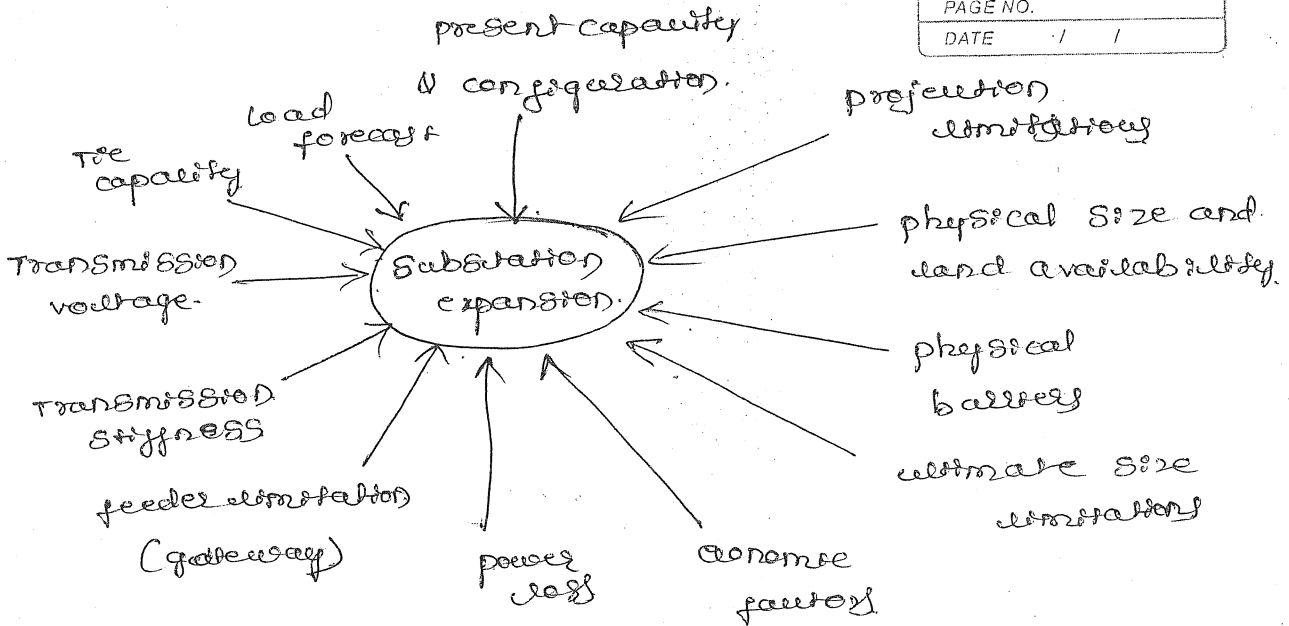 PAGE NO.
DATE / /
present capacity
& configuration.
Load
forecast
Tie
capacity
Transmission
voltage.
Transmission
stiffness
feeder limitation
(gateway)
power
loss
economic
factors
ultimate size
limitations
physical
barriers
physical size and
land availability
projection
limitations
Substation
expansion.